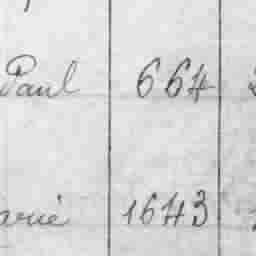 Paul 664
arié 1643